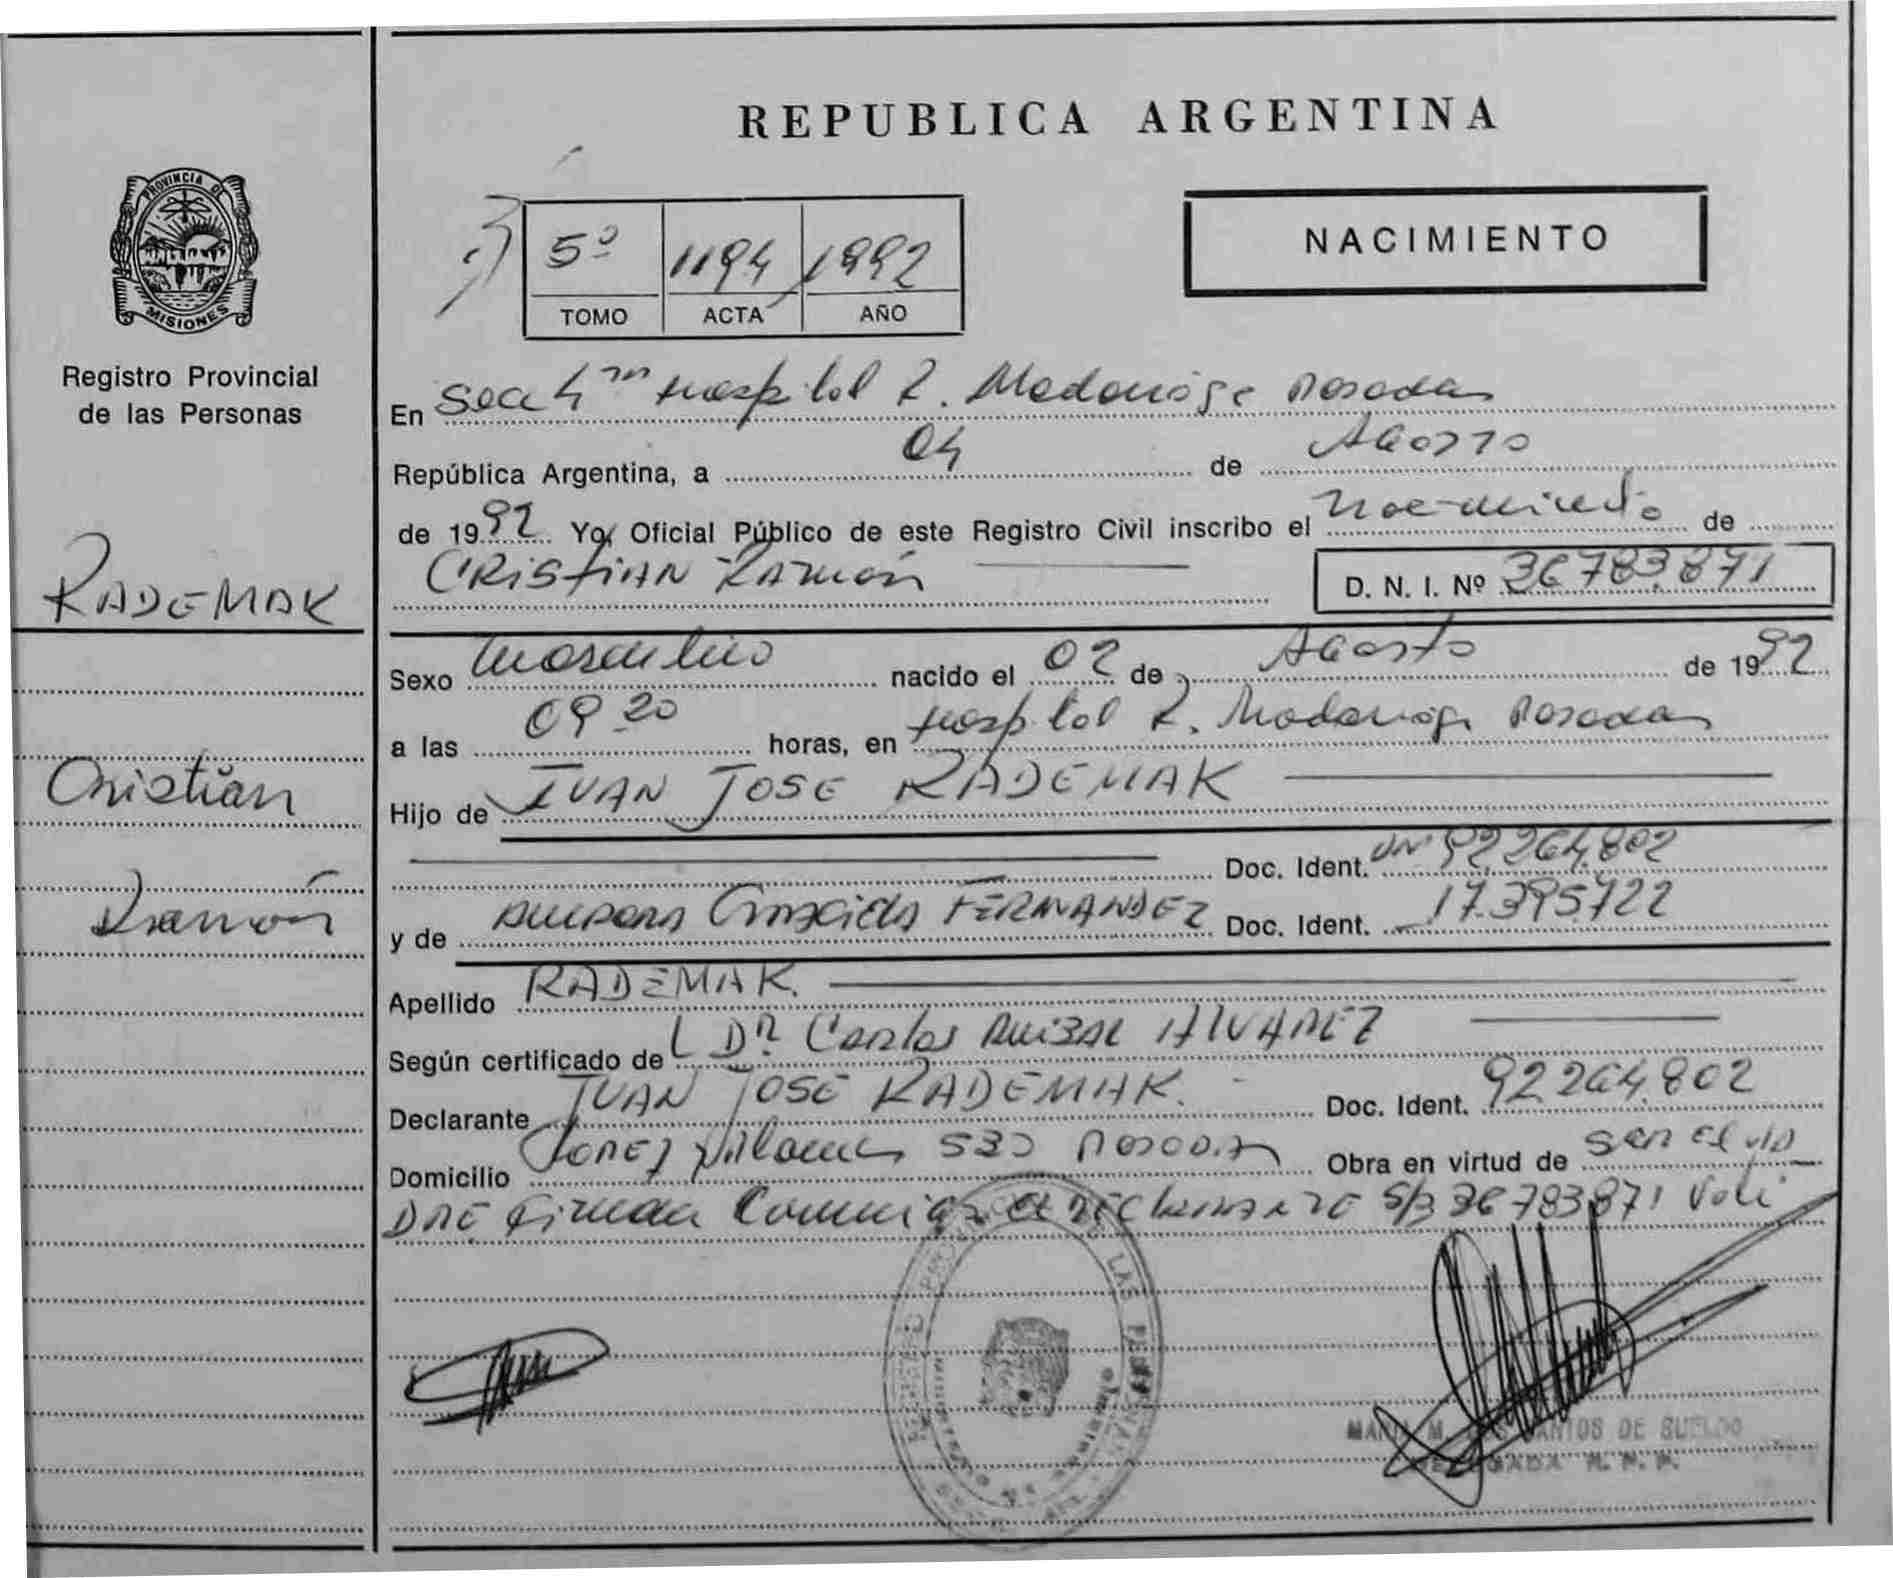 PROVINCIA DE
MISIONES
Registro Provincial
de las Personas
RADEMAK
Cristian
Ramón
REPUBLICA ARGENTINA
5º 1194 1992
TOMO ACTA AÑO
NACIMIENTO
En Secc 4ta Hospital R. Madariaga Posadas
República Argentina, a 04 de Agosto
de 1992 Yo, Oficial Público de este Registro Civil inscribo el nacimiento de
CRISTIAN RAMÓN D. N. I. Nº 36783.871
Sexo masculino nacido el 02 de Agosto de 1992
a las 09 20 horas, en Hospital R. Madariaga Posadas
Hijo de IVAN JOSE RADEMAK
Doc. Ident. 92.264.802
y de FERNANDEZ Doc. Ident. 17.395.722
Apellido RADEMAK.
Según certificado de L Dr. Carlos ALVAREZ
Declarante IVAN JOSE RADEMAK. Doc. Ident. 92.264.802
Domicilio 530 Posadas Obra en virtud de ser el
padre firma el declarante S/B 36783871
REGISTRO LAS PERSONAS
MARIA M. DOS SANTOS DE SUELDO
DELEGADA R. P. P.